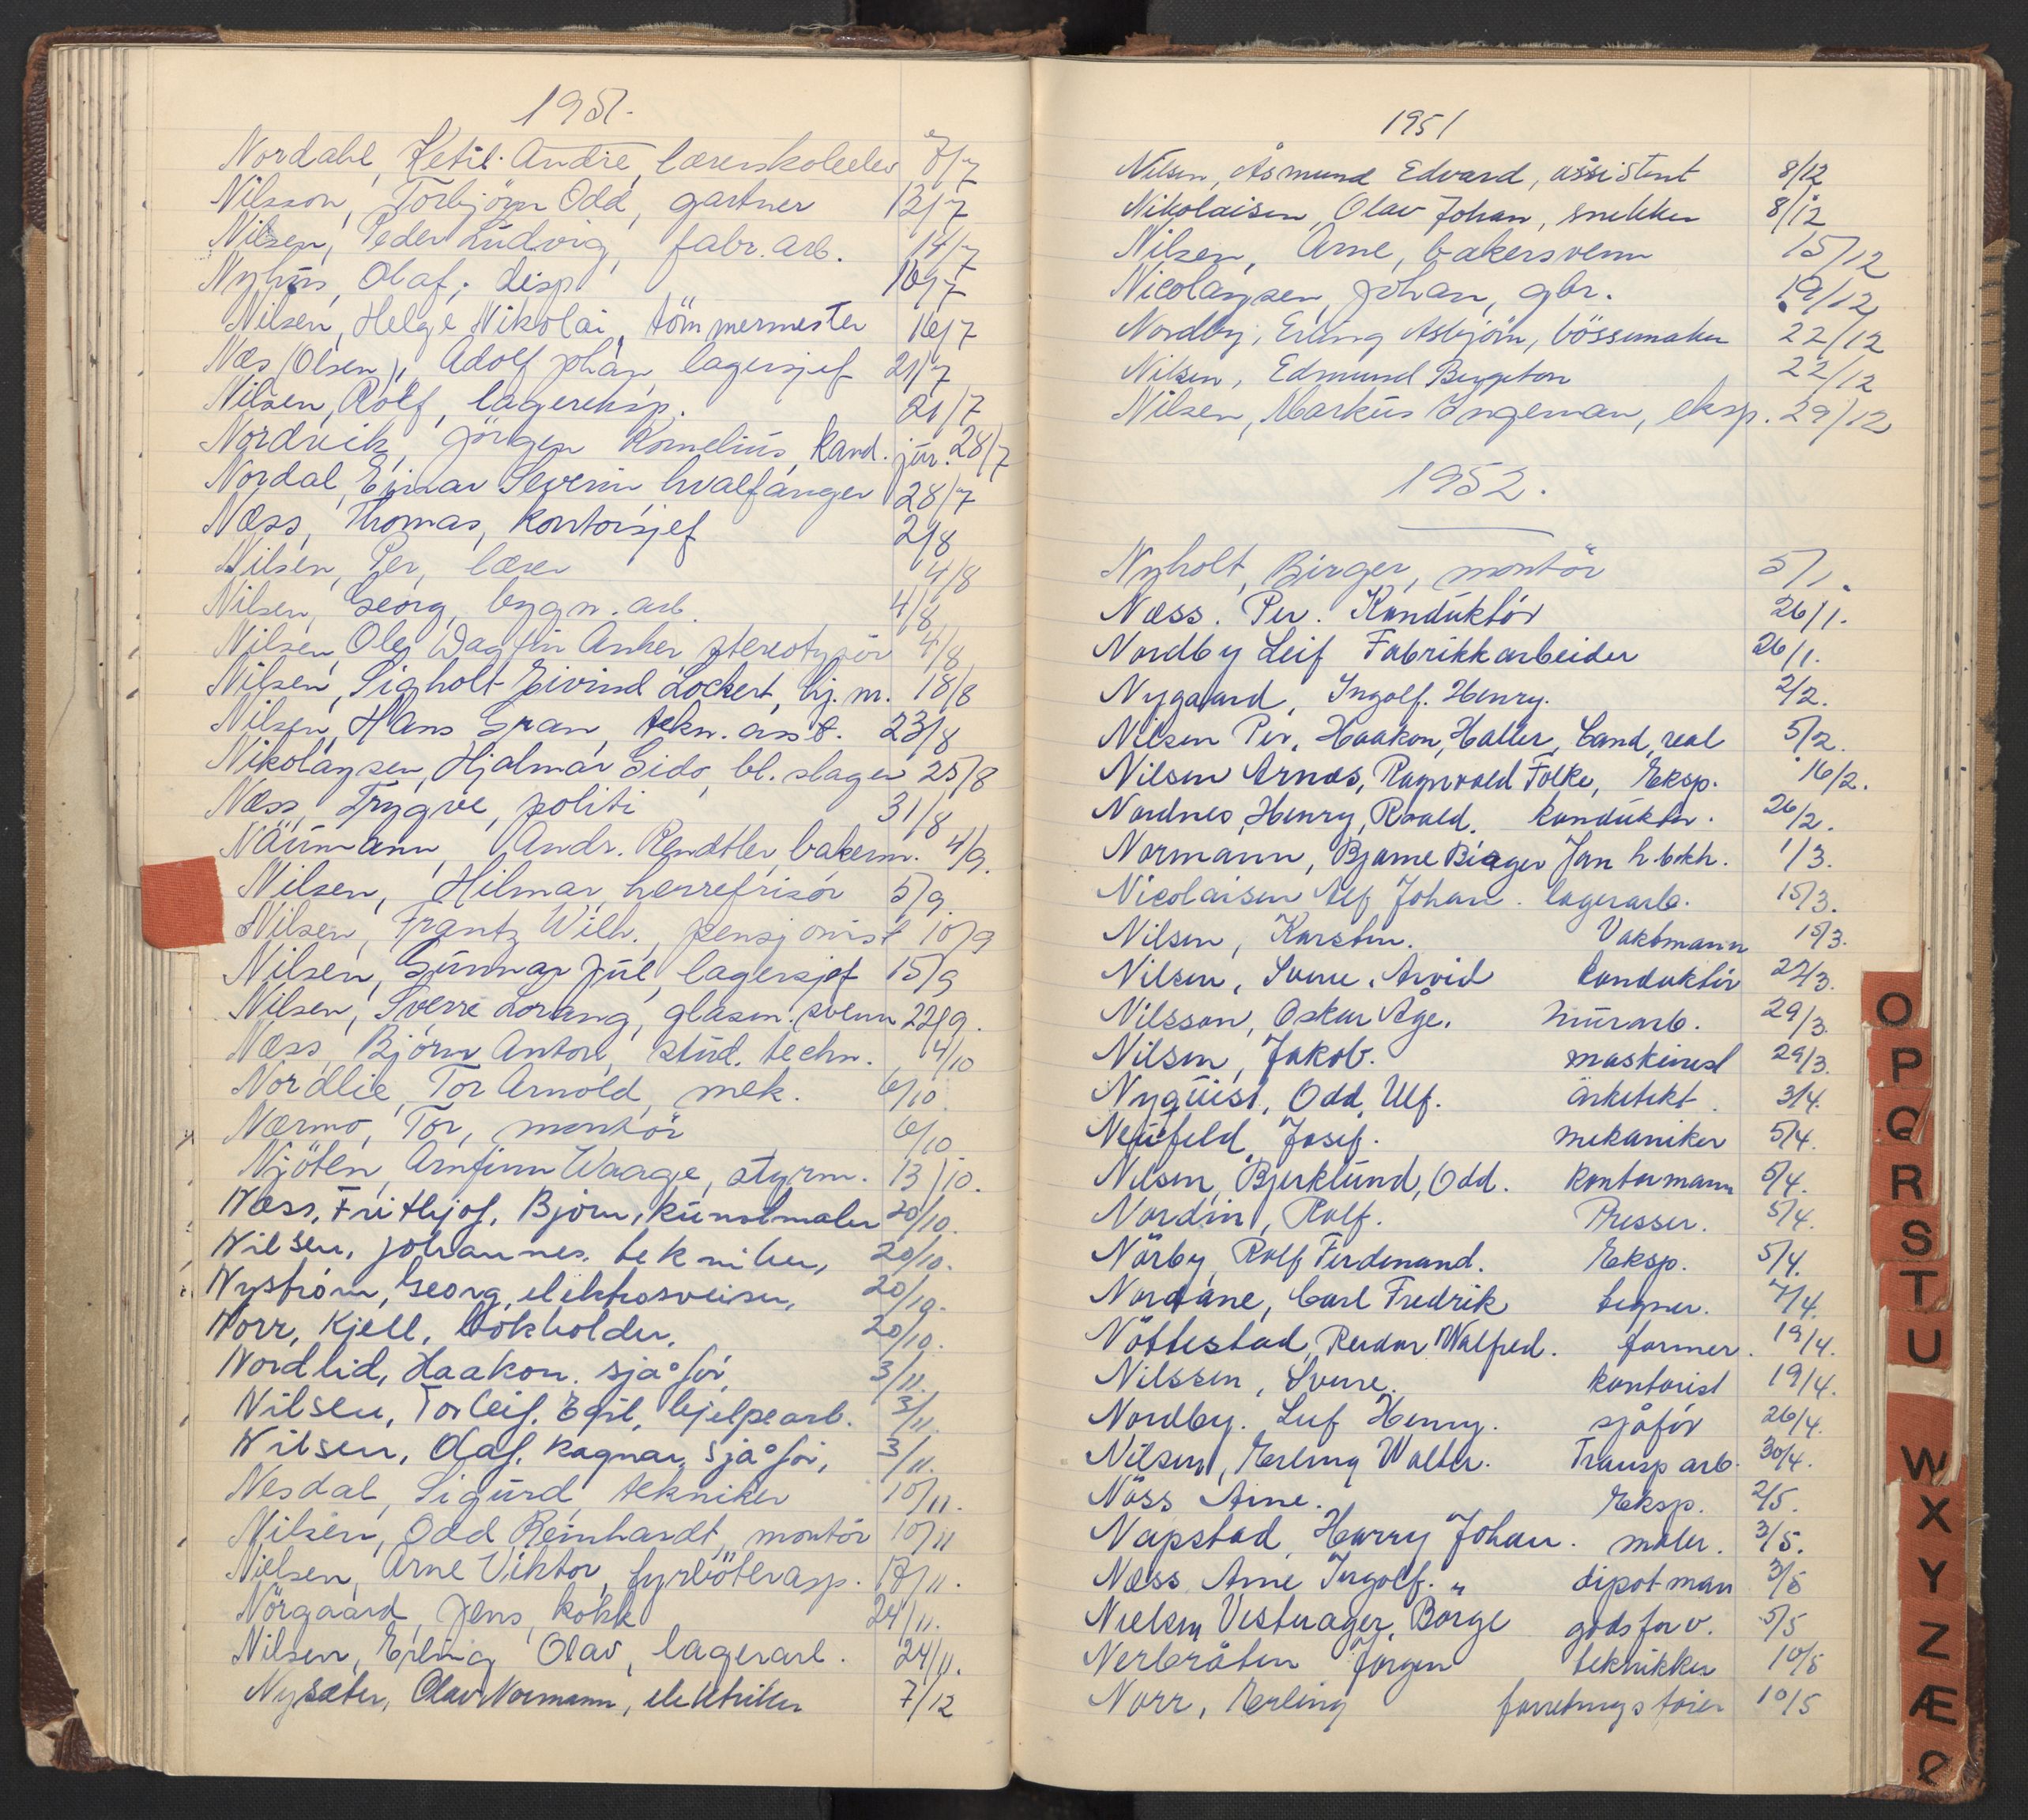 1951.
Nordahl, Ketil André, lærerskoleelev 7/7
Nilsson, Torbjörn Odd, gartner 13/7
Nilsen, Peder Ludvig, fabr. arb. 14/7
Nyhus, Olaf, disp. 16/7
Nilsen, Helge Nikolai, tömmermester 16/7
Næs (Olsen), Adolf Johan lagersjef 21/7
Nilsen, Rolf, lagereksp. 21/7
Nordvik, Jörgen Kornelius, kand. jur. 28/7
Nordal, Einar Severin hvalfanger 28/7
Næss, Thomas, kontorsjef 2/8
Nilsen, Per, lærer 4/8
Nilsen, Georg, bygn. arb. 4/8
Nilsen, Ole Dagfin Anker, stereotypör 4/8
Nilsen, Sigholt Eivind Lockert, hj. m. 18/8
Nilsen, Hans Gran, tekn. asst. 23/8
Nikolaysen, Hjalmar Sido, bl. slager 25/8
Næss, Trygve, politi 31/8
Naumann, Andr. Rendtler, bakerm. 4/9.
Nilsen, Hilmar, herrefrisör 5/9
Nilsen, Frantz Wilh., pensjonist 10/9
Nilsen, Gunnar Jul, lagersjef 15/9
Nilsen, Sverre Lorang, glasm. svenn 22/9.
Næss, Björn Anton, stud. techn. 4/10
Nordlie, Tor Arnold, mek. 6/10
Nærmo, Tor, montör 6/10
Njöten, Arnfinn Waage, styrm. 13/10.
Næss, Frithjof, Bjorn, kunstmaler 20/10.
Nilsen, Johannes, tekniker, 20/10.
Nystrom, Georg, elektrosveiser, 20/10.
Norr, Kjell, bokholder, 20/10.
Nordlid, Haakon. sjåför, 3/11.
Nilsen, Torleif, Egil, hjelpearb. 3/11.
Nilsen, Olaf, Ragnar, sjåför, 3/11.
Nesdal, Sigurd, tekniker 10/11.
Nilsen, Odd Reinhardt, montör 10/11
Nielsen, Arne Viktor, fyrböterasp. 17/11.
Nörgaard, Jens, kokk 24/11.
Nilsen, Erling Olav, lagerarb. 24/11.
Nysæter, Olav Normann, elektriker 7/12
1951
Nilsen, Åsmund Edvard, assistent 8/12
Nikolaisen, Olav Johan, snekker 8/12
Nilsen, Arne, bakersvenn 15/12
Nicolaysen, Johan, gbr. 19/12
Nordby, Erling Asbjörn, bössemaker 22/12
Nilsen, Edmund Bergeton 22/12
Nilsen, Markus Ingeman, eksp. 29/12
1952.
Nyholt, Birger, montör 5/1.
Næss. Per. Konduktör 26/1.
Nordby Leif Fabrikkarbeider 26/1.
Nygaard, Ingolf. Henry. 2/2.
Nilsen Per, Haakon, Haller, Cand, real 5/2.
Nilsen Arnds, Ragnvald Folke, Eksp. 16/2.
Nordnes, Henry, Roald. konduktör. 26/2.
Normann, Bjarne Birger Jan h. bokh. 1/3.
Nicolaisen Alf Johan. lagerarb. 15/3.
Nilsen, Karsten. Vaktmann 15/3.
Nilsen, Sverre, Arvid konduktör 22/3.
Nilsson, Oskar Åge. murarb. 29/3.
Nilsen, Jakob. maskinist 29/3.
Nyquist, Odd, Ulf. arkitekt. 3/4.
Neufeld, Josef. mekaniker 5/4.
Nilsen, Bjerklund, Odd. kontormann 5/4.
Nordin, Rolf. Presser. 5/4.
Nörby, Rolf Ferdinand. Eksp. 5/4.
Nordane, Carl Fredrik tegner. 7/4.
Nöttestad, Reidar Walfred. former. 19/4.
Nilssen, Sverre. kontorist 19/4.
Nordby. Leif Henry. sjåför 26/4.
Nilsen, Erling Walter. Transp arb. 30/4.
Nöss Arne. Eksp. 2/5.
Napstad, Harry Johan. maler. 3/5.
Næss Arne Ingolf. " dipotman 3/5
Nielsen Vesterager, Börge godsforv. 5/5
Nerbråten Jörgen teknikker 10/5
Norr, Erling forretningsförer 10/5
O
P
Q
R
S
T
U
W
X
Y
Z
Æ
Ø